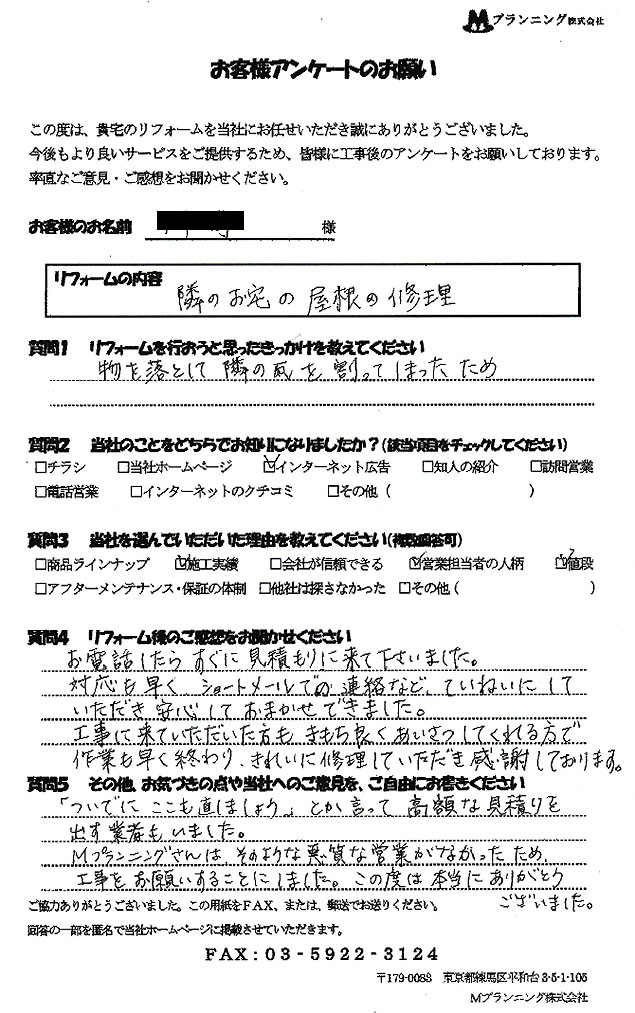 Mプランニング株式会社
お客様アンケートのお願い
この度は、貴宅のリフォームを当社にお任せいただき誠にありがとうございました。
今後もより良いサービスをご提供するため、皆様に工事後のアンケートをお願いしております。
率直なご意見・ご感想をお聞かせください。
お客様のお名前 様
リフォームの内容
隣のお宅の屋根の修理
質問1 リフォームを行おうと思ったきっかけを教えてください
物を落として隣の瓦を割ってしまったため
質問2 当社のことをどちらでお知りになりましたか?(該当項目をチェックしてください)
□チラシ □当社ホームページ ☑インターネット広告 □知人の紹介 □訪問営業
□電話営業 □インターネットのクチコミ □その他( )
質問3 当社を選んでいただいた理由を教えてください(複数回答可)
□商品ラインナップ ☑施工実績 □会社が信頼できる ☑営業担当者の人柄 ☑値段
□アフターメンテナンス・保証の体制 □他社は探さなかった □その他( )
質問4 リフォーム後のご感想をお聞かせください
お電話したらすぐに見積もりに来て下さいました。
対応も早く ショートメールでの連絡など、ていねいにして
いただき安心しておまかせできました。
工事に来ていただいた方も きもち良くあいさつしてくれる方で
作業も早く終わり、きれいに修理していただき感謝しております。
質問5 その他、お気づきの点や当社へのご意見を、ご自由にお書きください
「ついでにここも直しましょう」とか言って高額な見積りを
出す業者もいました。
Mプランニングさんは、そのような悪質な営業がなかったため、
工事をお願いすることにしました。この度は本当にありがとう
ございました。
ご協力ありがとうございました。この用紙をFAX、または、郵送でお送りください。
回答の一部を匿名で当社ホームページに掲載させていただきます。
FAX:03-5922-3124
〒179-0083 東京都練馬区平和台3-5-1-105
Mプランニング株式会社